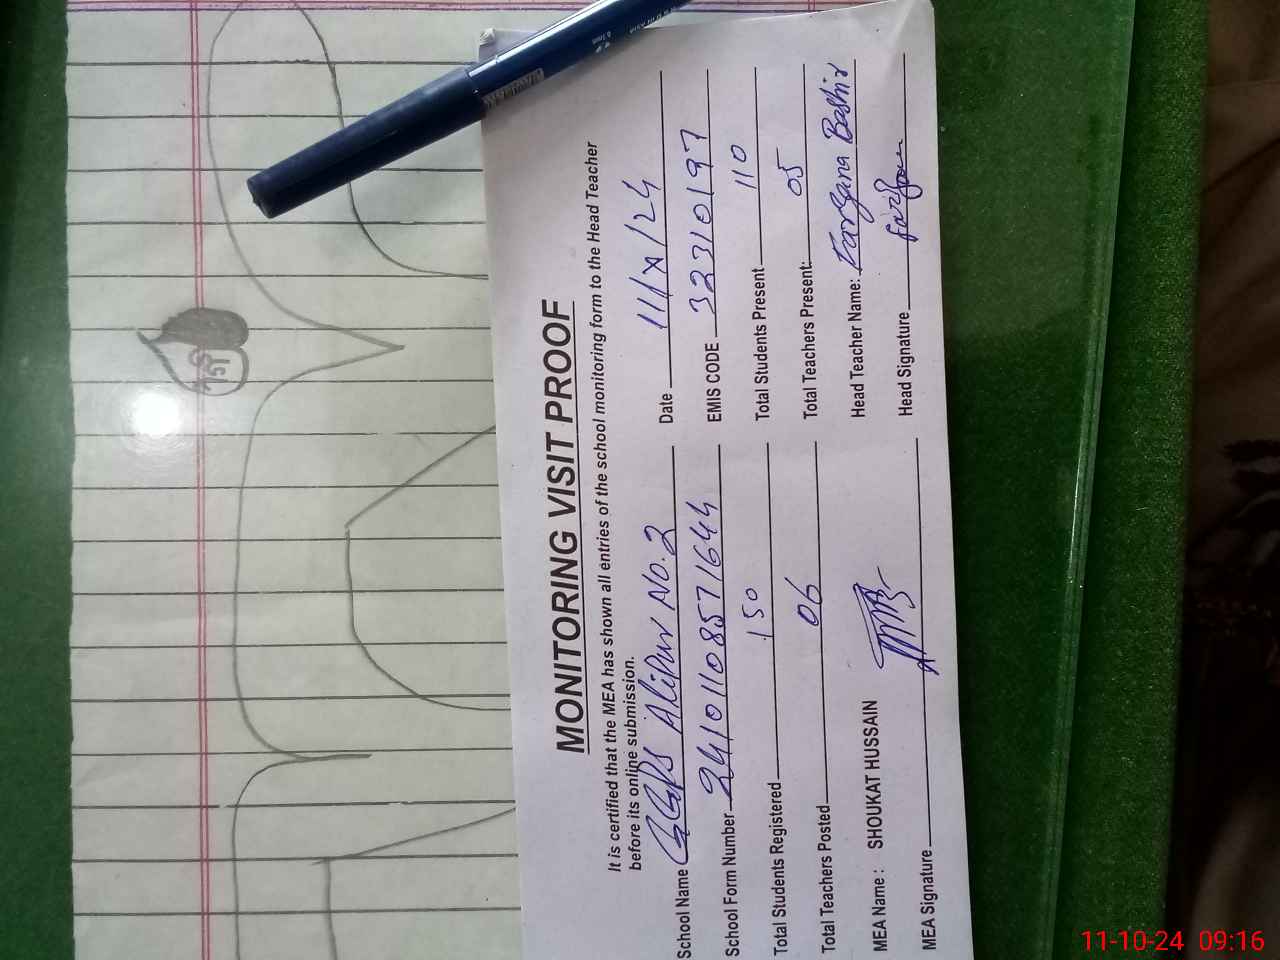 MONITORING VISIT PROOF
It is certified that the MEA has shown all entries of the school monitoring form to the Head Teacher
before its online submission.
School Name GGPS Alipur No.2 Date 11/X/24
School Form Number 24101108571644 EMIS CODE 32310197
Total Students Registered 150 Total Students Present 110
Total Teachers Posted 06 Total Teachers Present: 05
MEA Name : SHOUKAT HUSSAIN Head Teacher Name: Farzana Bashir
MEA Signature Head Signature
11-10-24 09:16